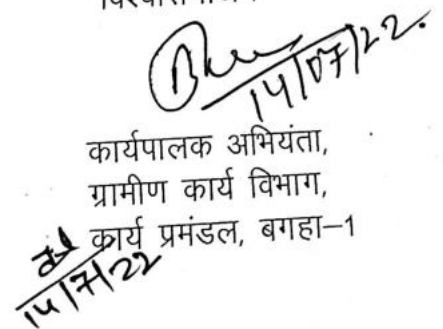 14/07/22.
कार्यपालक अभियंता,
ग्रामीण कार्य विभाग,
कार्य प्रमंडल, बगहा–1
14/7/22